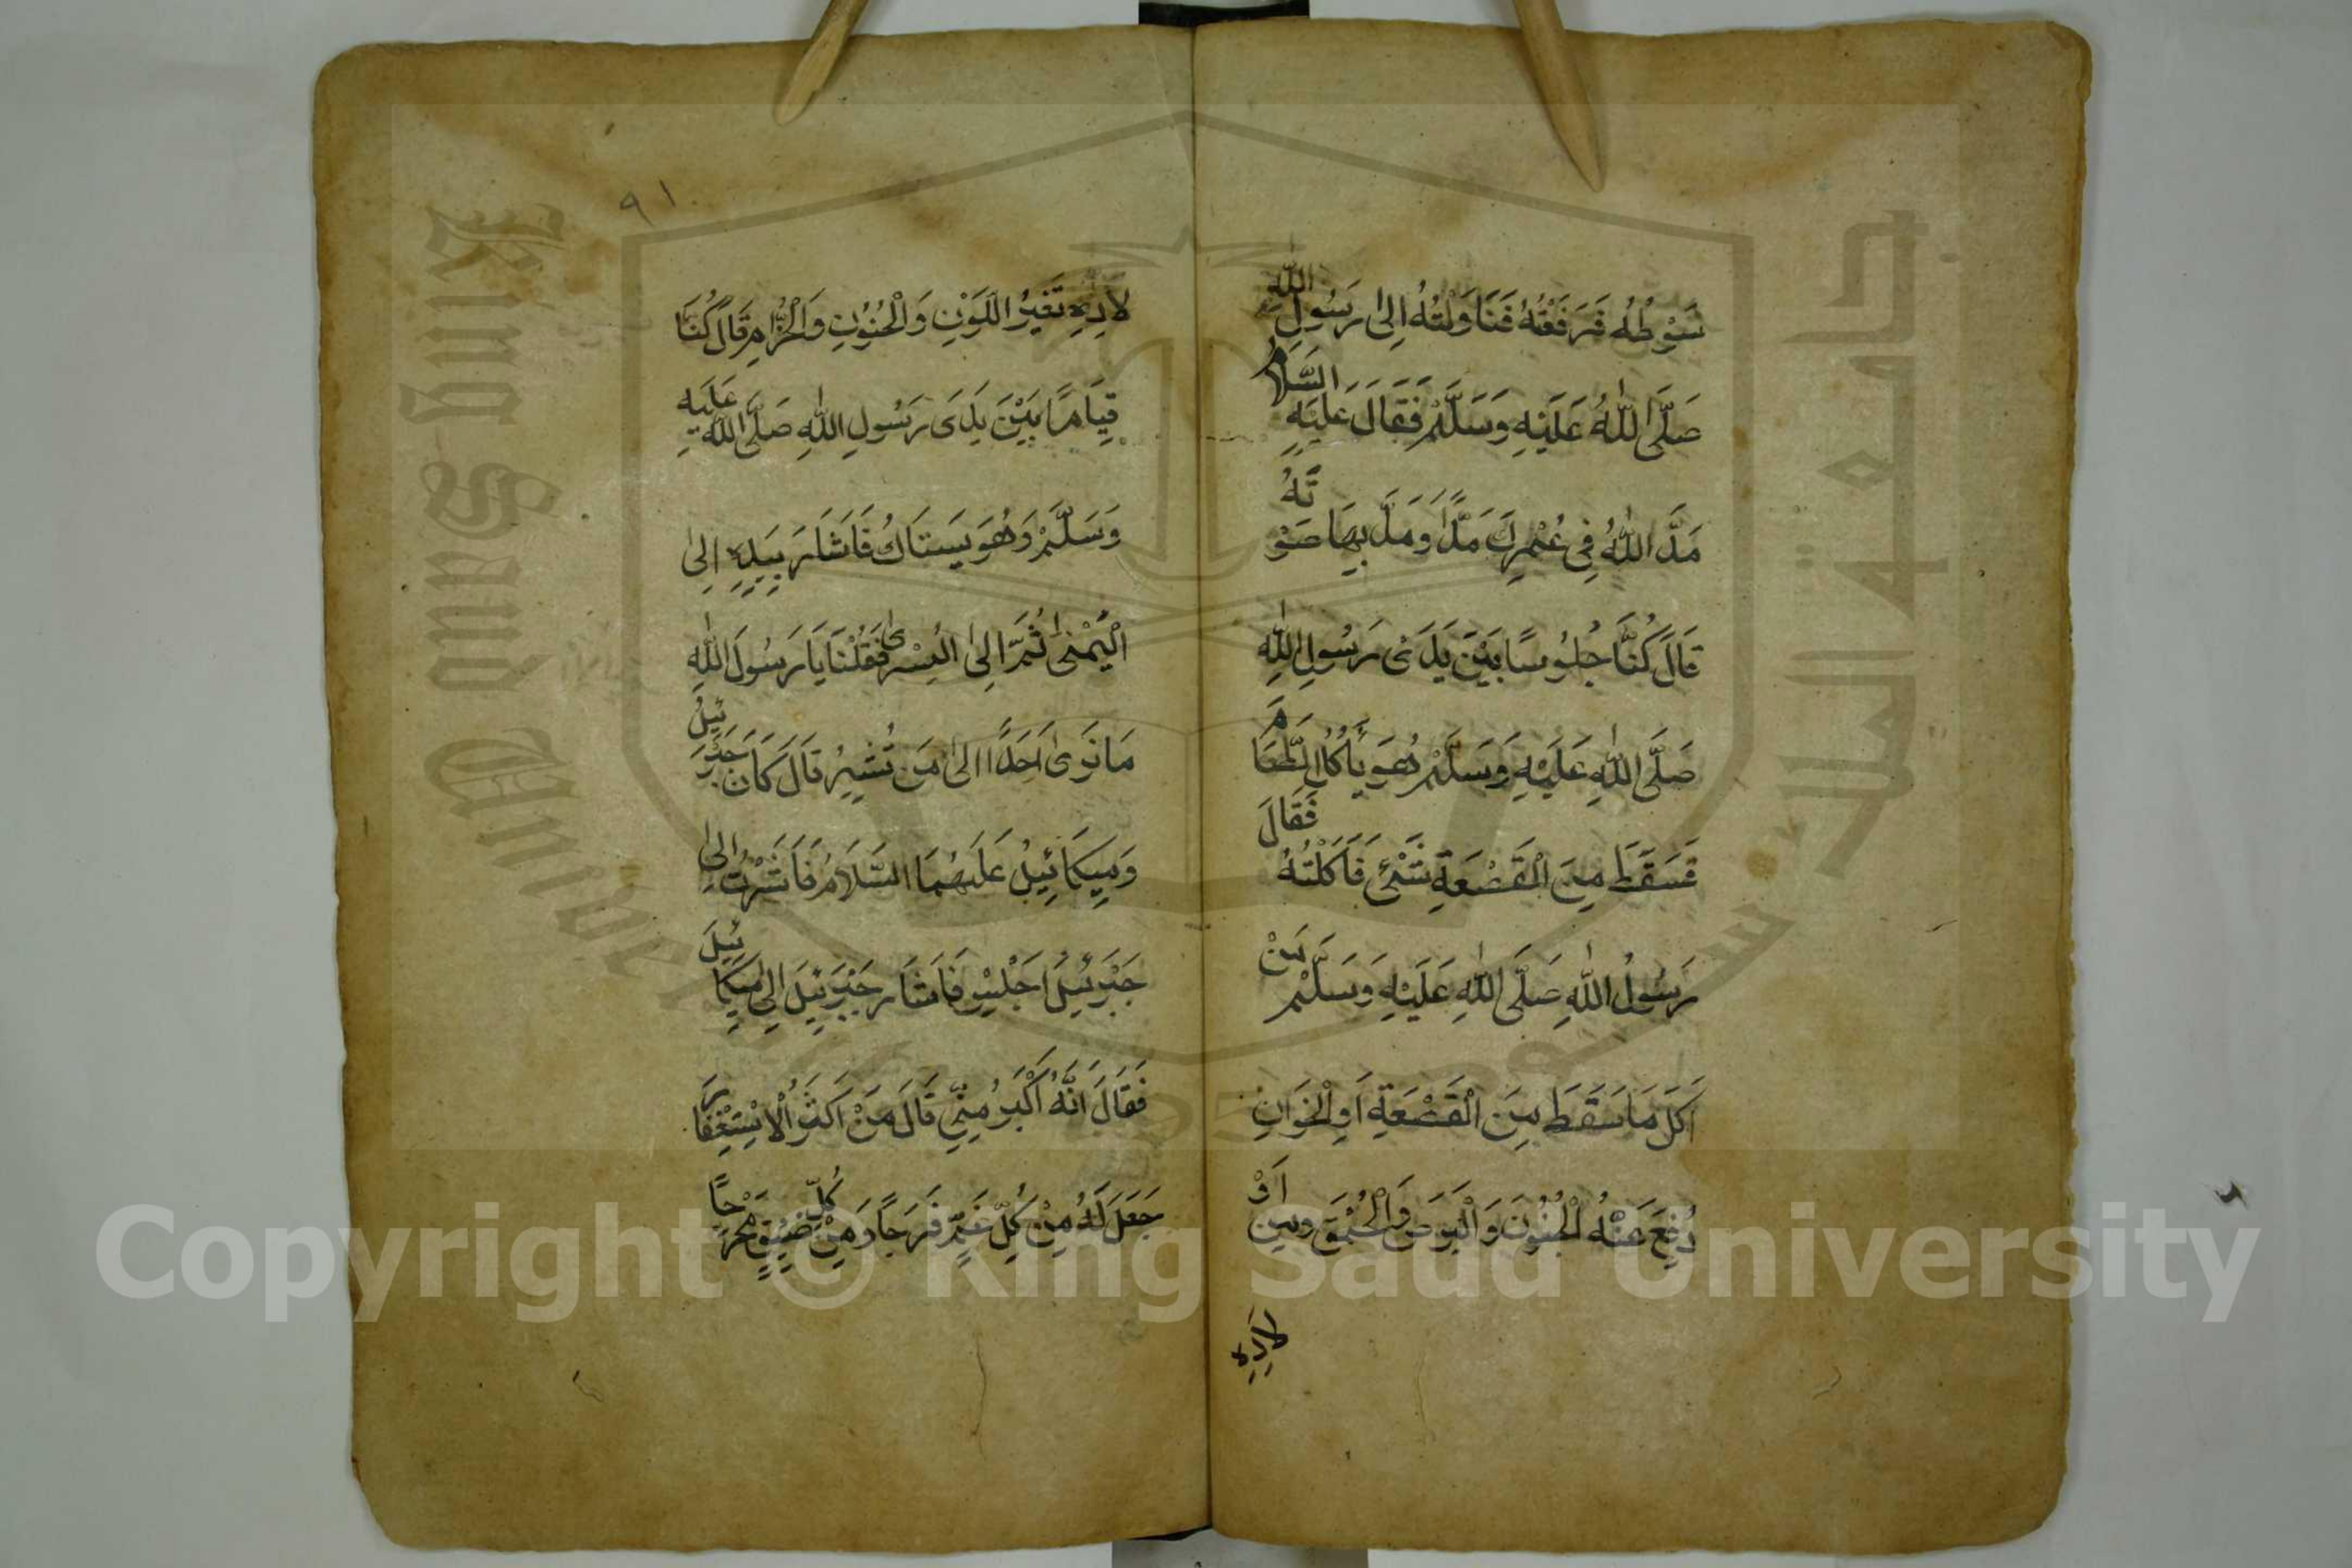 سَوْطُهُ فَرَفَعْتُهُ فَنَاوَلْتُهُ اِلىٰ رَسُولِ اللّٰه
صَلَّى اللّٰهُ عَلَيْهِ وَسَلَّمْ فَقَالَ عَلَيْهِ السَّلَامُ
مَدَّ اللّٰهُ فِي عُمْرِكَ مَدًّا وَمَدَّ بِهَا صَوْتَهُ
قَالَ كُنَّا جُلُوسًا بَيْنَ يَدَىْ رَسُولِ اللّٰهِ
صَلَّى اللّٰهِ عَلَيْهِ وَسَلَّمْ هُوَ يَأْكُلُ الطَّعَامَ
فَسَقَطَ مِنَ الْقَصْعَةِ شَيْئٌ فَاَكَلْتُهُ فَقَالَ
رَسُولُ اللّٰهِ صَلَّى اللّٰهِ عَلَيْهِ وَسَلَّمْ مَنْ
اَكَلَ مَا سَقَطَ مِنَ الْقَصْعَةِ اَوِ الْخَوَانِ
دُفِعَ عَنْهُ الْجُنُونَ وَالْبَرَصَ وَالْحُمْقَ وَمِنْ اَوْ
لادِهِ
٩١
لادِهِ تَغَيُّرُ اللَّوْنِ وَالْجُنُونِ وَالْجُزَامِ قَالَ كُنَّا
قِيَامًا بَيْنَ يَدَى رَسُولِ اللّٰهِ صَلَّى اللّٰه عَلَيْهِ
وَسَلَّمْ وَهُوَ يَسْتَاكُ فَاَشَارَ بِيَدِهِ اِلىٰ
الْيُمْنىٰ ثُمَّ اِلىٰ الْيُسْرىٰ فَقُلْنَا يَا رَسُولَ اللّٰهِ
مَا نَرىٰ اَحَدًا اِلىٰ مَن تُشِيرُ قَالَ كَانَ جَبْرَئِيلُ
وَمِيكَائِيلُ عَلَيْهِمَا السَّلَامُ فَاَشَرْتُ اِلىٰ
جَبْرَئِيلَ اَجْلِسْ فَاَشَارَ جَبْرَئِيلَ اِلىٰ مِيكَائِيلَ
فَقَالَ اَنَّهُ اَكْبَرُ مِنِّي قَالَ مَنْ اَكْثَرَ الْاِسْتِغْفَارَ
جَعَلَ لَهُ مِنْ كُلِّ غَمٍّ فَرَجًا وَمِنْ كُلِّ ضَيِّقٍ مَخْرَجًا
Copyright © King Saud University